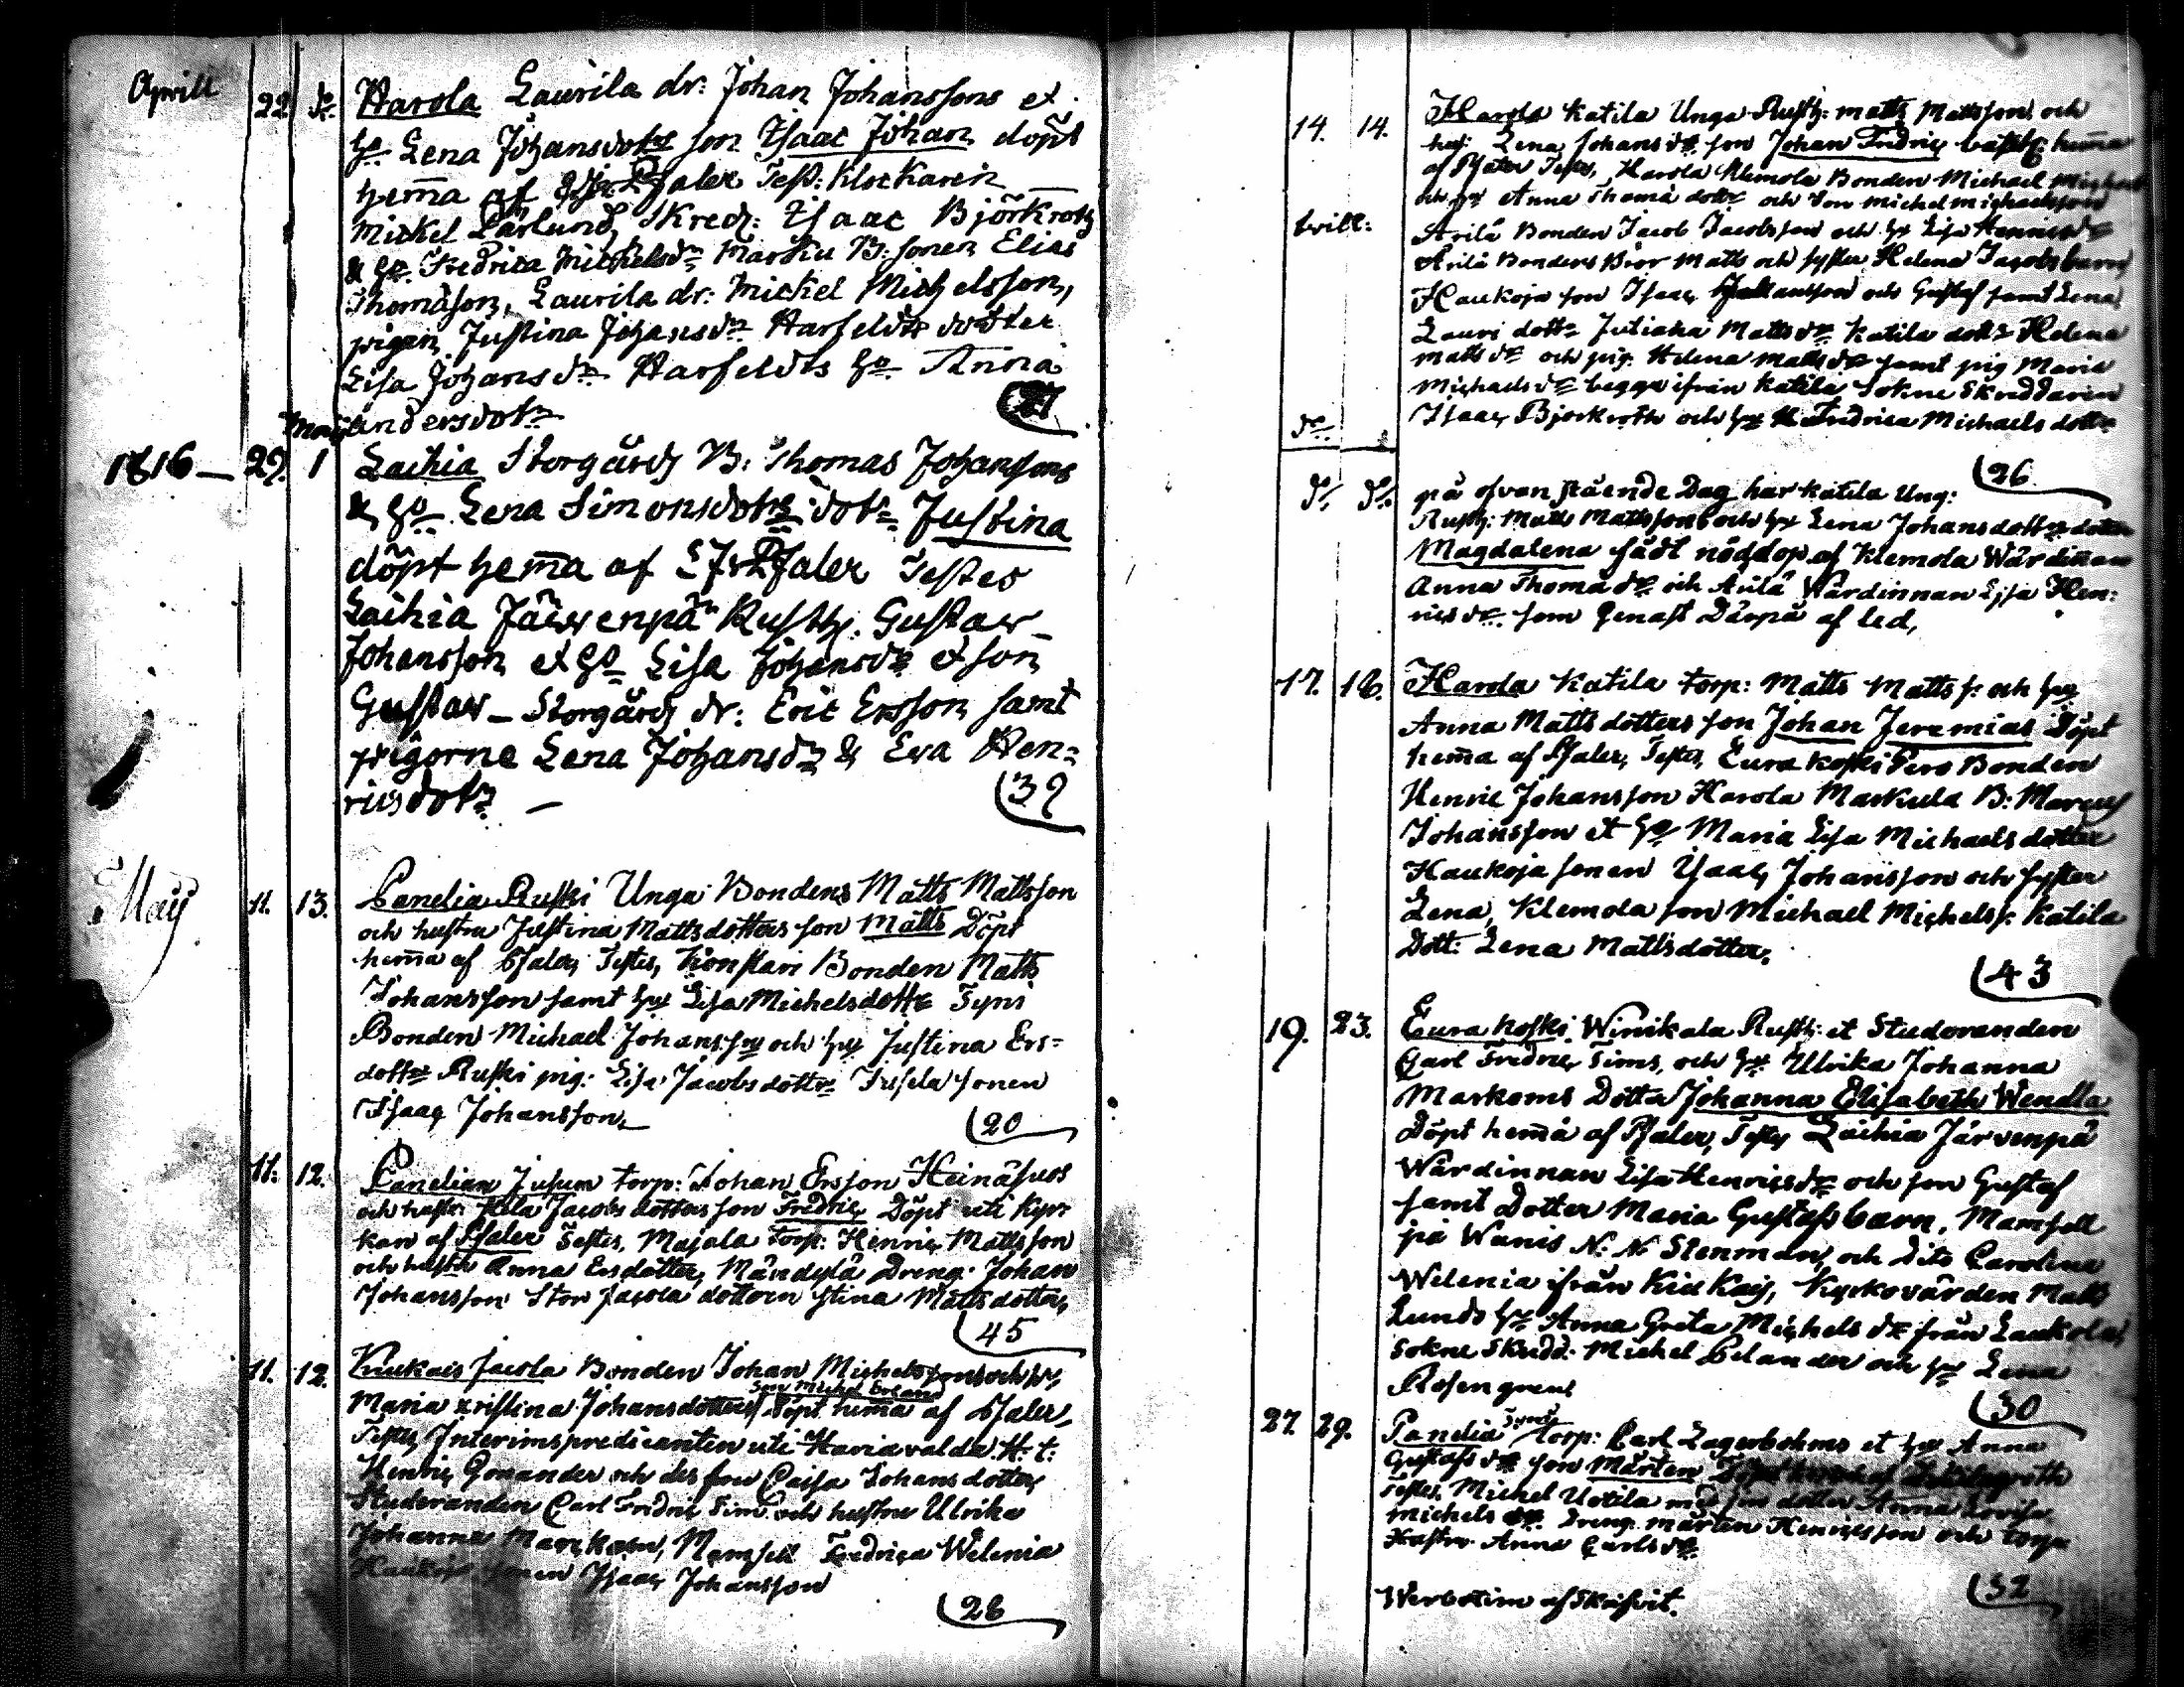 Aprill 22 do Harola Laurila dr: Johan Johanssons et
ho Lena Johansdotrs son Isaac Johan döpt
hem̄a af Pfaler Test: Klockaren
Mickel Färlund, Skred: Isaac Björkroth
& ho Fredrica Michelsdr Marku B. sonen Elias
Thomasson, Laurila dr: Mickel Michelsson,
pigan Justina Johansdr Harfeldts dotter
Lisa Johansdr Harfeldts ho Anna
Andersdotr
Maij
1816 — 29. 1 Laihia Storgård B: Thomas Johanssons
& ho Lena Simonsdotrs dotr Justina
döpt hem̄a af Pfaler Testes
Laihia Järvenpä Rusth. Gustav
Johansson et ho Lisa Johansdr et son
Gustav — Storgård dr: Eric Ersson samt
pigorne Lena Johansdr & Eva Hen=
ricsdotr —
39
May 11. 13. Panelia Ruski Unga Bondens Matts Mattsson
och hustru Justina Mattsdotters son Matts Döpt
hem̄a af Pfaler, Testes, Bonden Matts
Johansson samt hu Lisa Michelsdottr Tyni
Bonden Michael Johansson och hu Justina Ers=
dottr Ruski pig: Lisa Jacobsdottr sonen
Isaac Johansson
20
11: 12. Panelian torp: Johan Ersson Heinäsuos
och hustru Jacobs dotters son Fredric Döpt uti Kyr=
kan af Pfaler Testes, Majala Torp: Henric Mattsson
och hustru Anna Ersdotter, Mändylä Dreng: Johan
Johansson Stor Jacola dottern Stina Mattsdotter,
45
11. 12. Kiukais Jacola Bonden Johan Michelssons och hu
Son Michel Erland
Maria Kristina Johansdotters Döpt hem̄a af Pfaler,
Testes Interimspredicanten uti H. t:
Henric Gonander och des fru Caisa Johansdotter,
Studeranden Carl Fredric Sim och hustru Ulrika
Johanna Marckom, Mamsell Fredrica Welenia
Haukoja sonen Isaac Johansson
26
14. 14. Harola Katila Unga Rusth: Matts Mattsson och
hu: Lena Johansdr son Johan Fredric hem̄a
af Pfaler Testes, Harola Klemola Bonden Michael
och hu Anna Thomä dottr och Son Michel Michaelsson
Arilä Bonden Jacob Jacobsson och hu Lisa
Arilä Bondens Bror Matts och syster Helena Jacobsbarn
Haukoja son Isaac Johansson och Gustaf samt Lena
Lauri dottr Juliana Mattsdr Katila dottr Helena
Mattsdr och pig. Helena Mattsdr samt pig Maria
Michaelsdr begge ifrån Katila Sokne Skreddaren
do Isaac Björkroth och hu Fredrica Michaels dottr
26
do do på ofvan stående Dag har Katila Ung:
Rusth: Matts Mattssons och hu Lena Johansdottrs dotter
Magdalena fådt nöddop af Klemola Wärdinnan
Anna Thomädr och Arilä Wärdinnan Lisa Hen:
ricsdr som Genast Därpå af led,
17. 18. Harola Katila torp: Matts Mattss: och hu
Anna Mattsdotters son Johan Jeremias Döpt
hem̄a af Pfaler, Testes, Eura koski Pero Bonden
Henric Johansson Harola Markula B: Marcus
Johansson et ho Maria Lisa Michaelsdotter
Haukoja sonen Isaac Johansson och syster
Lena, Klemola son Michael Michelss: Katila
Dott: Lena Mattsdotter,
43
19. 23. Eura koski Winikala Rusth: et Studeranden
Carl Fredric Sims, och hu Ulrika Johanna
Markoms Dotter Johanna Elisabeth Wendla
Döpt hem̄a af Pfaler, Testes Laihia Järvenpä
Wärdinnan Lisa Henricsdr och son Gustaf
samt Dotter Maria Gustafs barn. Mamsell
på Wanis N: N: Stenman, och Dito Carolina
Welenia ifrån Kiu Kais, Kyrkovärden Matts
Lunds hu Anna Greta Michelsdr från Laukola
Sokne Skredd: Michel Selander och hu Lena
Rosengrens
30
27. 29. Panelia Tyni torp: Carl Lagerbohms et hu Anna
Gustafsdr son Mårten
Testes, Michel Uotila dotter Anna Lovisa
Michelsdr Dreng Mårten Henricsson och torp:
Hustru Anna Carlsdr
32
Werbotim afskrifvit.